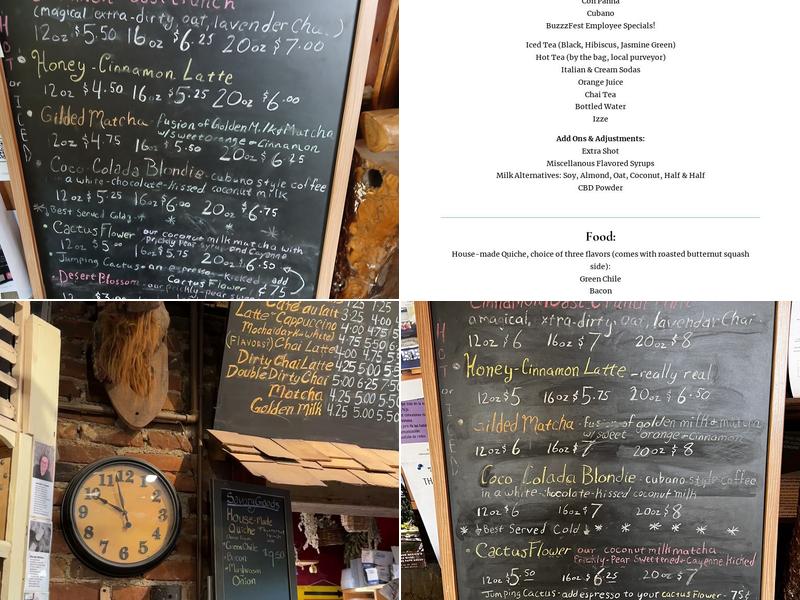 (magical extra-dirty, oat, lavender Chai.)
12oz $5.50 16oz $6.25 20oz $7.00
Honey-Cinnamon Latte
12oz $4.50 16oz $5.25 20oz $6.00
Gilded Matcha - fusion of Golden Milk & Matcha
w/sweet orange + cinnamon
12oz $4.75 16oz $5.50 20oz $6.25
Coco-Colada Blondie - cubano style coffee
a white-chocolate-kissed coconut milk
12oz $5.25 16oz $6.00 20oz $6.75
Best Served Cold
CactusFlower our coconut milk matcha with
Prickly Pear Syrup and Cayenne
12oz $5.00 16oz $5.75 20oz $6.50
Jumping Cactus - an espresso-kicked, add
CactusFlower, $.75
Desert Blossom - our prickly-pear
HOT or ICED
Con Panna
Cubano
BuzzzFest Employee Specials!
Iced Tea (Black, Hibiscus, Jasmine Green)
Hot Tea (by the bag, local purveyor)
Italian & Cream Sodas
Orange Juice
Chai Tea
Bottled Water
Izze
Add Ons & Adjustments:
Extra Shot
Miscellanous Flavored Syrups
Milk Alternatives: Soy, Almond, Oat, Coconut, Half & Half
CBD Powder
Food:
House-made Quiche, choice of three flavors (comes with roasted butternut squash
side):
Green Chile
Bacon
Café au lait 3.25
Latte-Cappuccino 3.25 4.00
Mocha (dark or White) 4.00 4.75
(FLAVORS?) Chai Latte 4.00 4.75
Dirty Chai Latte
Double Dirty Chai 5.00 6.25
Matcha 4.25 5.00
Golden Milk 4.25 5.00
12 1 2 3 4 5 6 7 8 9 10 11
Savory Goods
House-Made
Quiche
Green Chile
Bacon
Mushroom
Onion
a magical, xtra-dirty, oat, lavendar Chai
12oz $6 16oz $7 20oz $8
Honey-Cinnamon Latte - really real
12oz $5 16oz $5.75 20oz $6.50
Gilded Matcha - fusion of golden milk & matcha
w/sweet orange-cinnamon
12oz $6 16oz $7 20oz $8
Coco Colada Blondie - cubano style coffee
in a white-chocolate-kissed coconut milk
12oz $6 16oz $7 20oz $8
Best Served Cold
CactusFlower our coconut milk matcha
Prickly-Pear Sweetened + Cayenne Kicked
12oz $5.50 16oz $6.25 20oz $7
Jumping Cactus - add espresso to your cactus Flower - 75¢